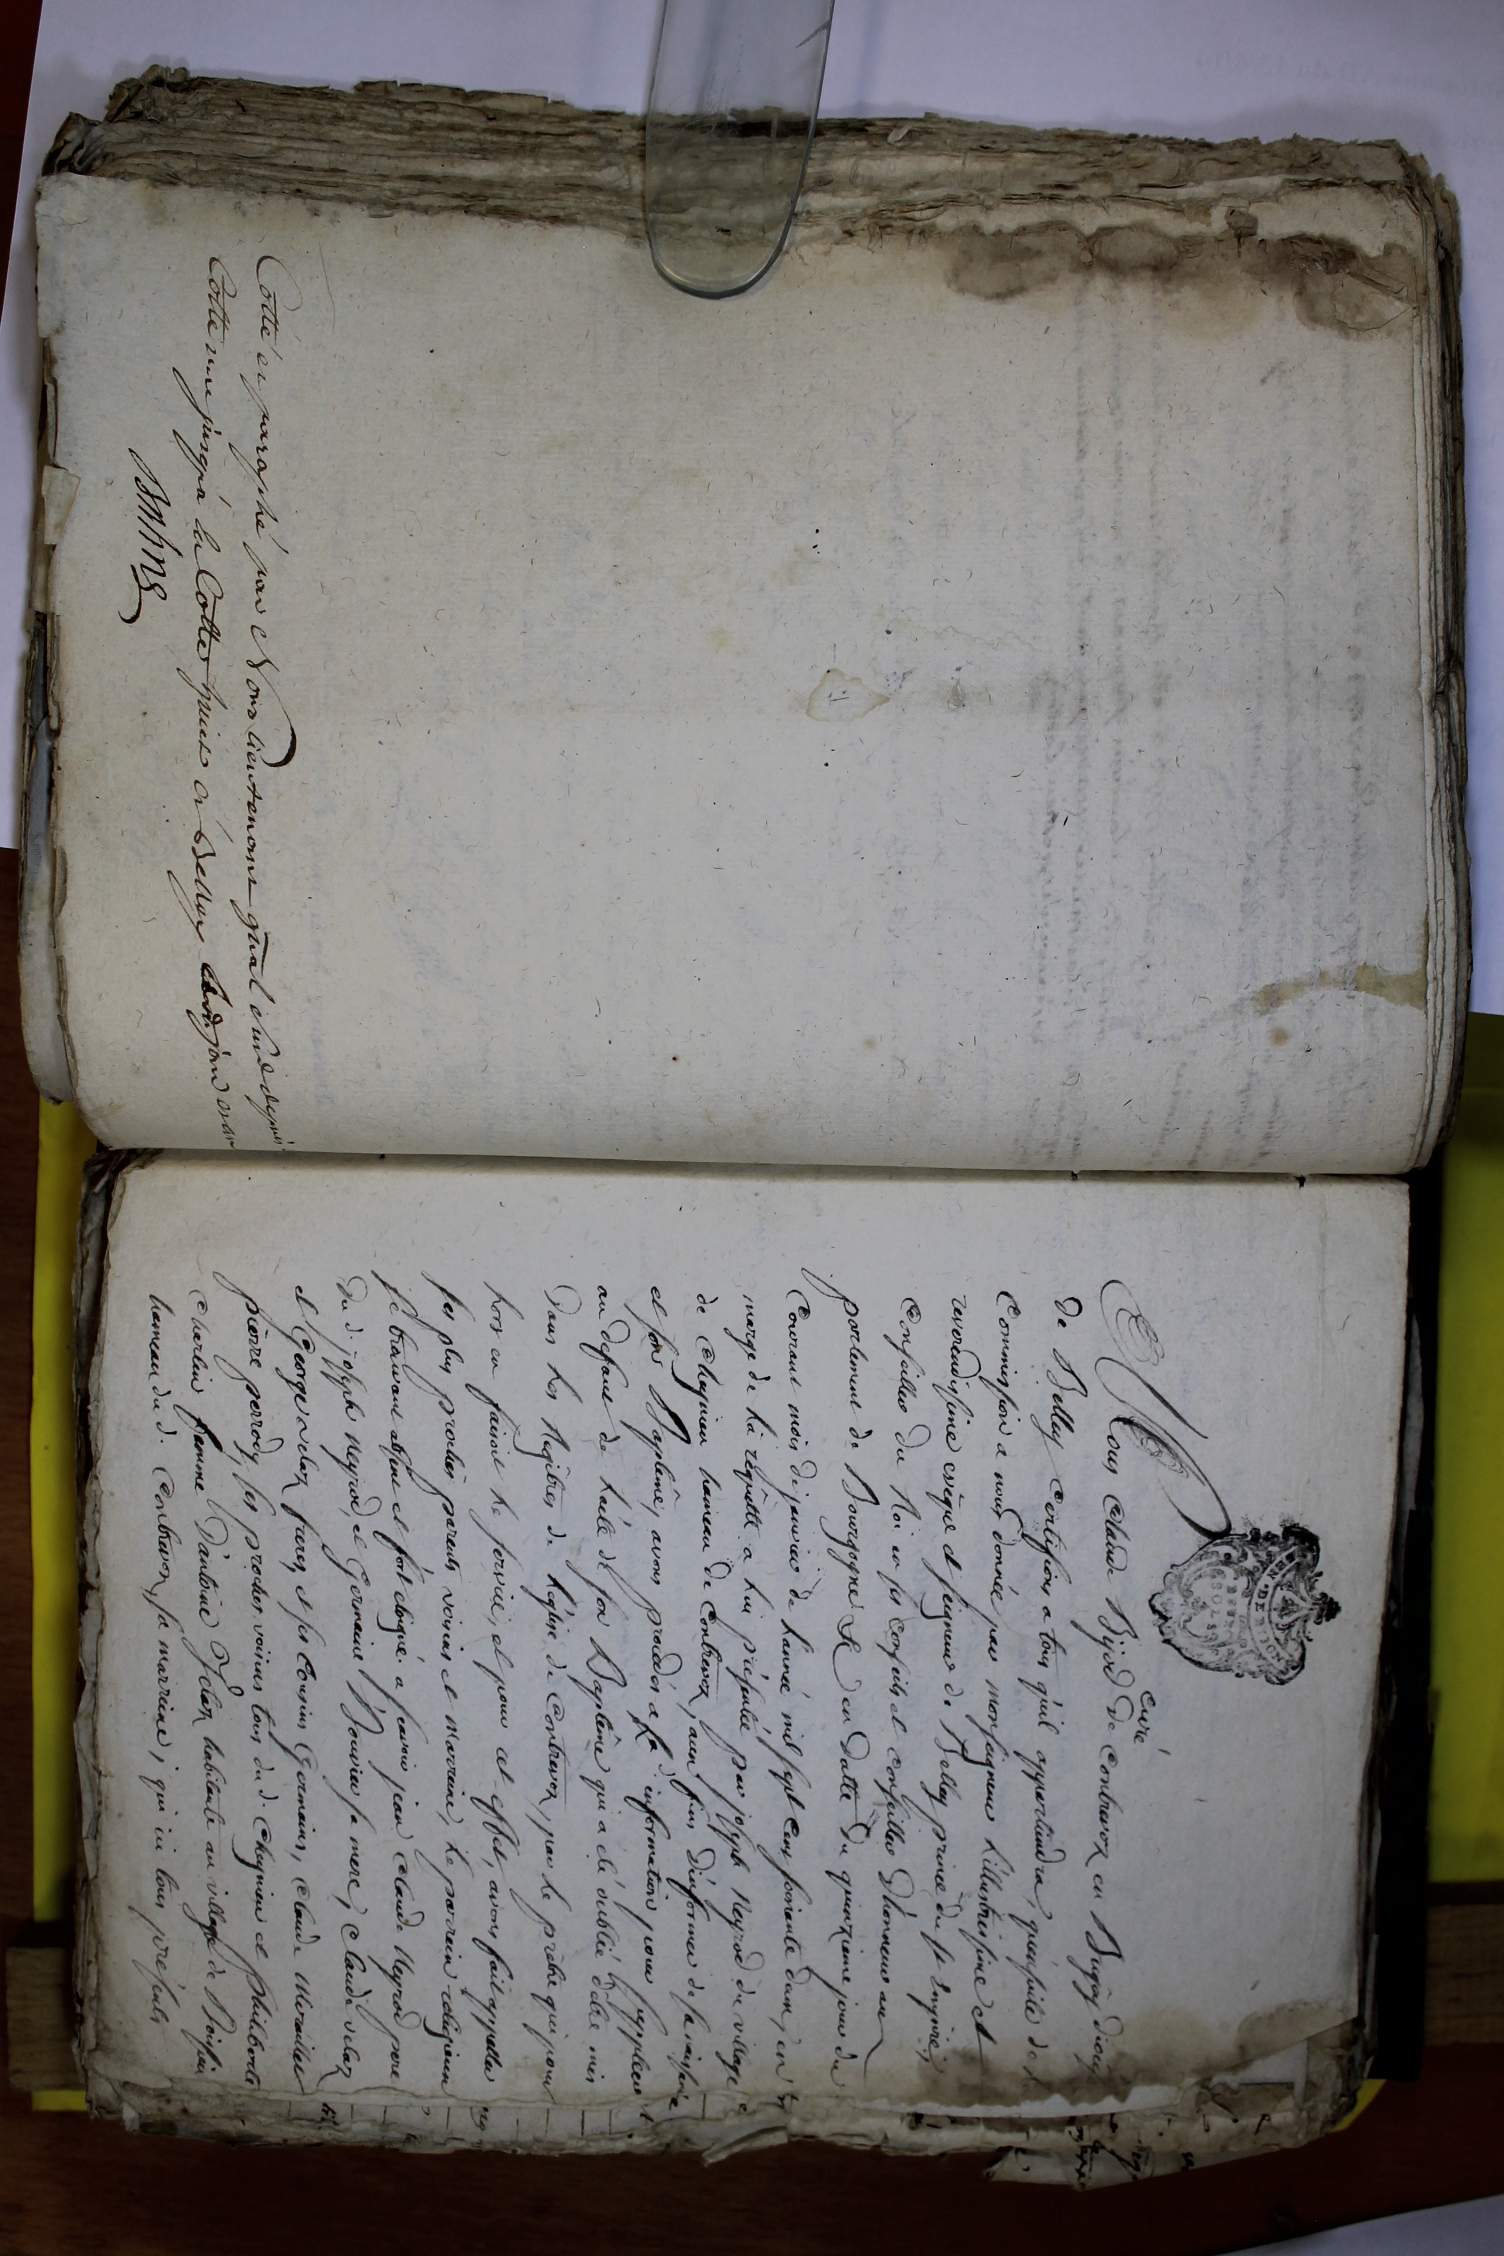 Cotté et paraphé par Nous lieutenant gñal civil depuis
Cotte une jusqu'à la Cotte huict à Belley
curé
Nous Claude Bijod de Contrevoz en Bugey dioc
de Belley Certifions a tous qu'il appartiendra, quensuite de l
Commission a nous donnée par monseigneur L'illustrissime et
reverendissime evêque et seigneur de Belley prince du St Empire,
Conseiller du Roi en ses Conseils et Conseiller D'honneur au
parlement de Bourgogne &c en datte du quinzieme jour du
Courant mois de janvier de Lannée mil sept cens soixante dans, en
marge de la requête a Lui présentée par joseph Neyrod du village
de Cheynieu hameau de Contrevoz, aux fins D'informer de la naissance
et son Baplême, avons procédés a La d. information pour suppleer
au defaut de Lacte de son Baplême qui a eté oublié d'être mis
Dans Les Regîtres de Léglise de Contrevoz, par le prêtre qui pour
Lors en faisoit Le service, et pour cet effet, avons fait appeller
ses plus proches parents voisins et marraine, Le parrein religieux
se trouvant absent et fort eloigné. a scavoir jean Claude Neyrod pere
du d. joseph Neyrod, et Germaine Bouvier sa mere, Claude velaz
et George velaz freres, et ses Cousins Germains, Claude Meraillet
pierre perrody, ses proches voisins tous du d. Cheynieu et philiberte
Charlin femme D'antoine velaz habitante au village de
hameau du d. Contrevoz, sa marraine; qui ici tous présents